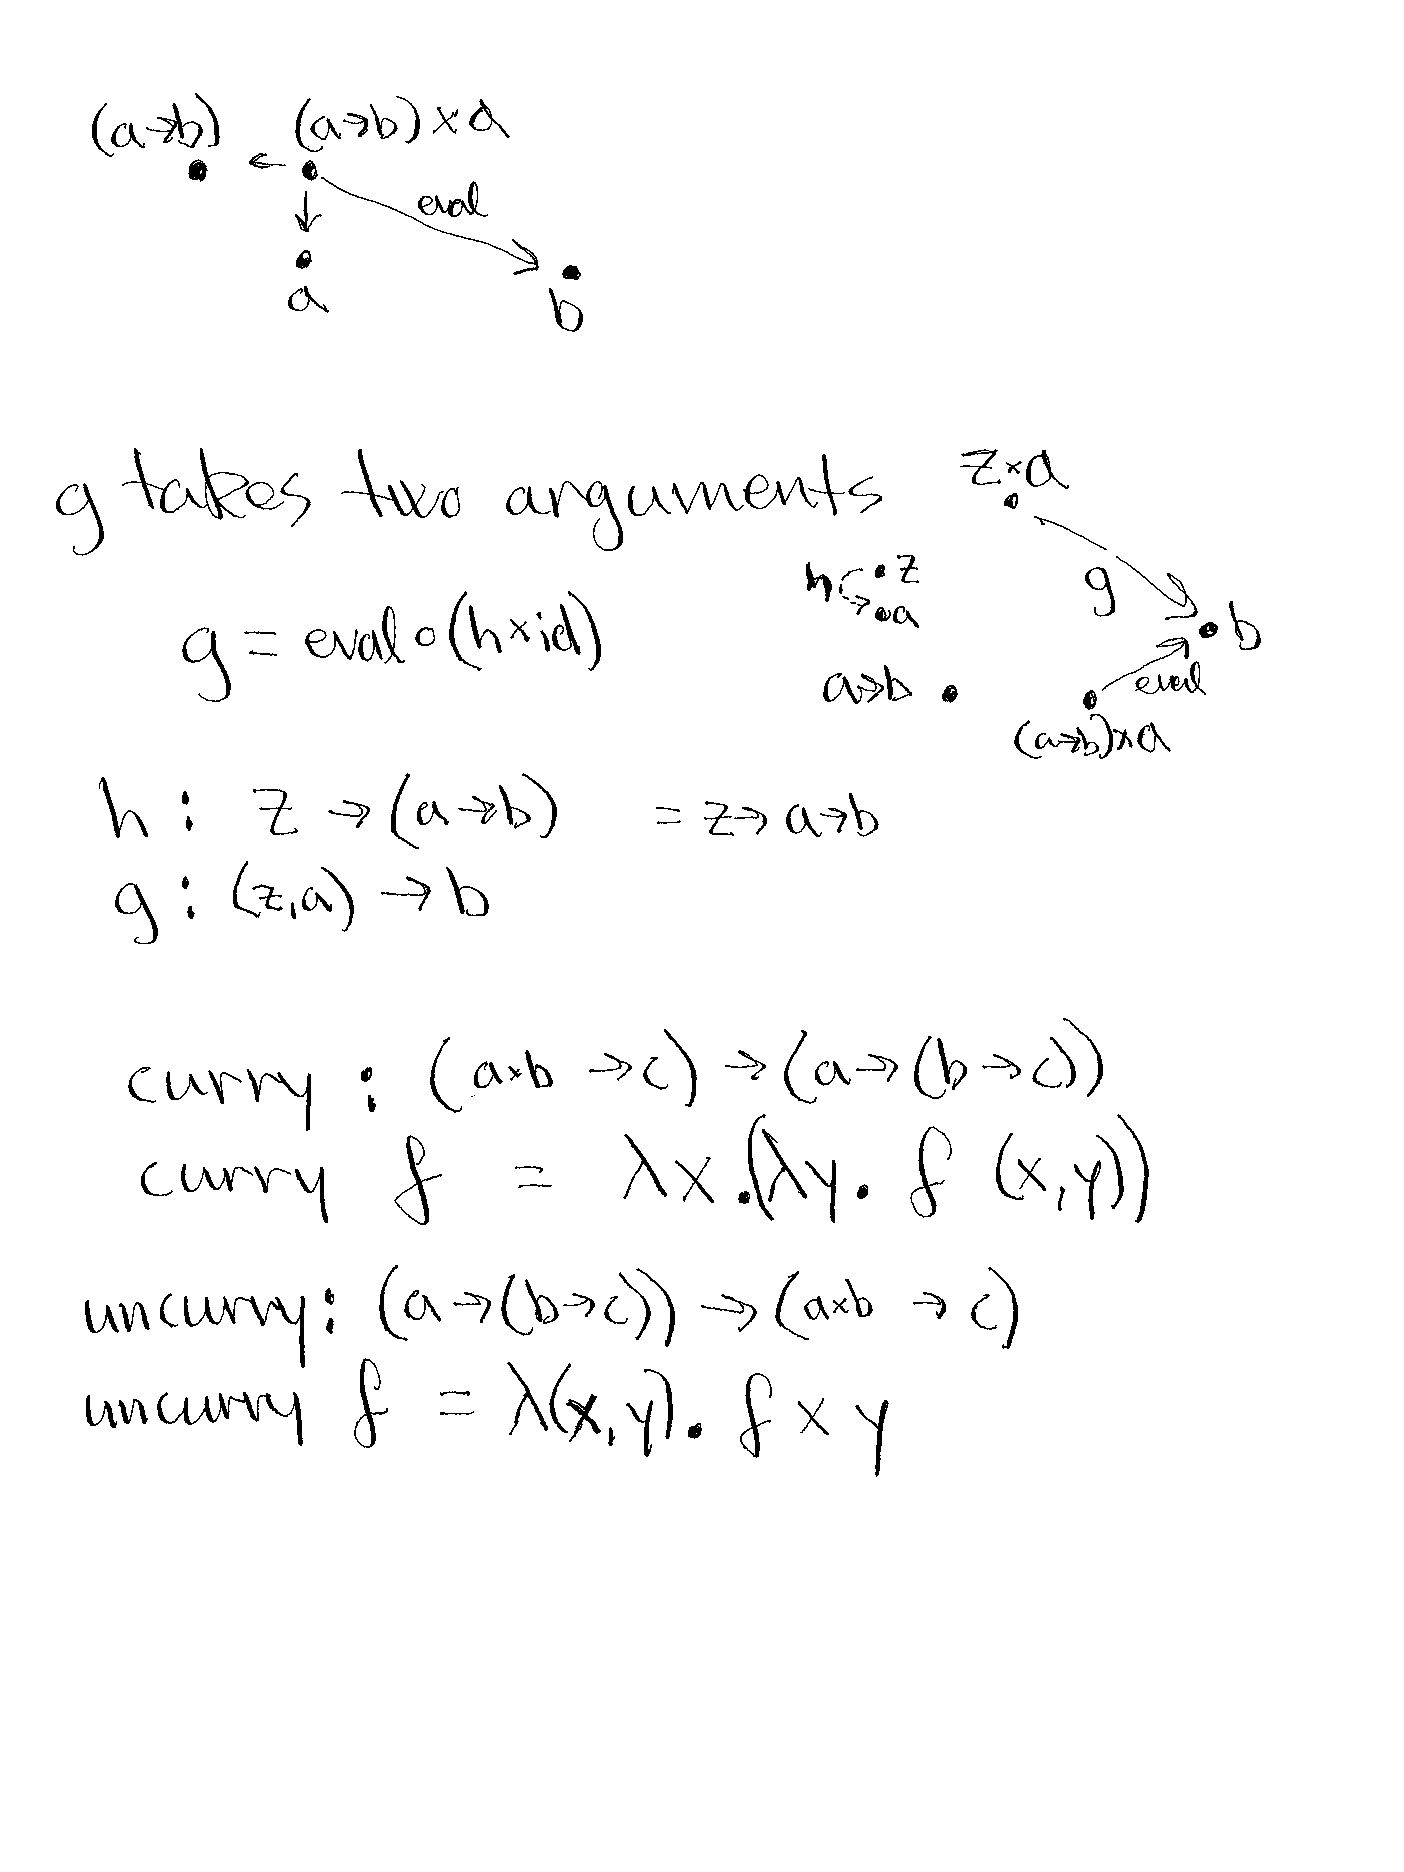 (a→b) (a→b)×a
eval
a
b
g takes two arguments
z×a
h z
a
g
g = eval∘(h×id)
b
a→b
eval
(a→b)×a
h : z → (a→b) = z→a→b
g : (z,a) → b
curry : (a×b → c) → (a→(b→c))
curry f = λx.(λy. f (x,y))
uncurry: (a→(b→c)) → (a×b → c)
uncurry f = λ(x,y). f x y